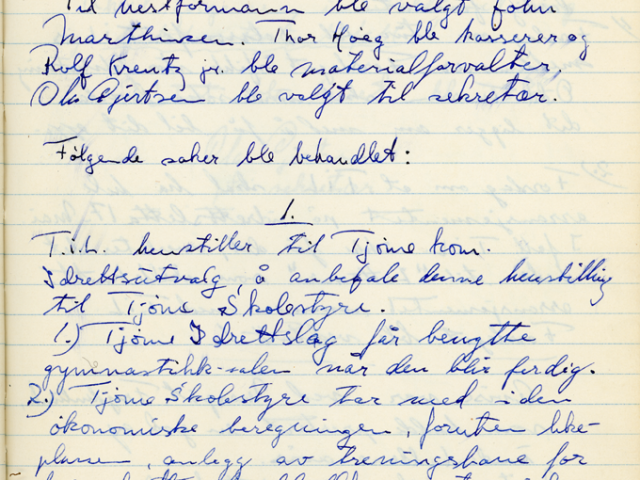 Til nestformann ble valgt John
Marthinsen. Thor Høeg ble kasserer og
Rolf Kreutz jr. ble materialforvalter,
Ola Gjertsen ble valgt til sekretær.
Følgende saker ble behandlet:
1.
T.i.L. henstiller til Tjöme kom.
Idrettsutvalg, å anbefale denne henstilling
til Tjöme Skolestyre.
1.) Tjöme Idrettslag får benytte
gymnastikk-salen når den blir ferdig.
2.) Tjöme Skolestyre tar med i den
økonomiske beregningen, foruten
planen, anlegg av treningsbane for